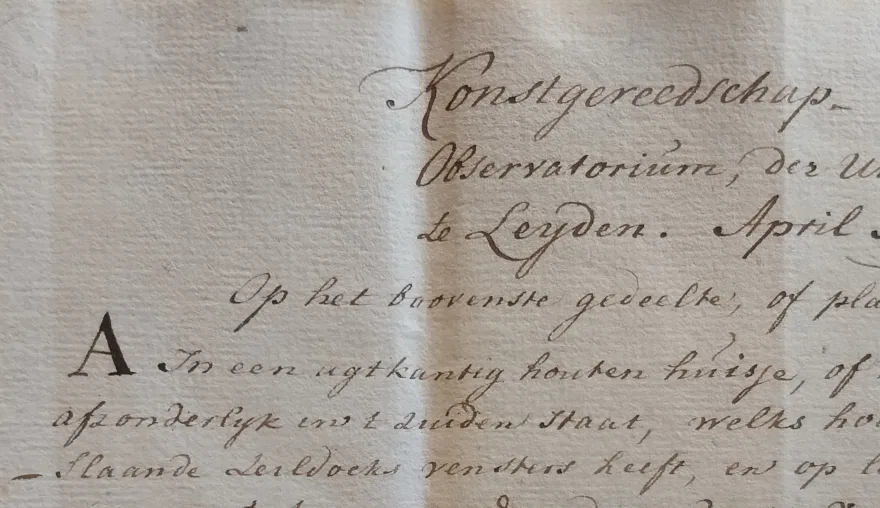 Konstgereedschap-
Observatorium, der
te Leyden. April
Op het boovenste gedeelte, of
A In een agtkantig houten huisje, of
afzonderlyk in 't zuiden staat, welks
slaande Zeildoeks vensters heeft, en op